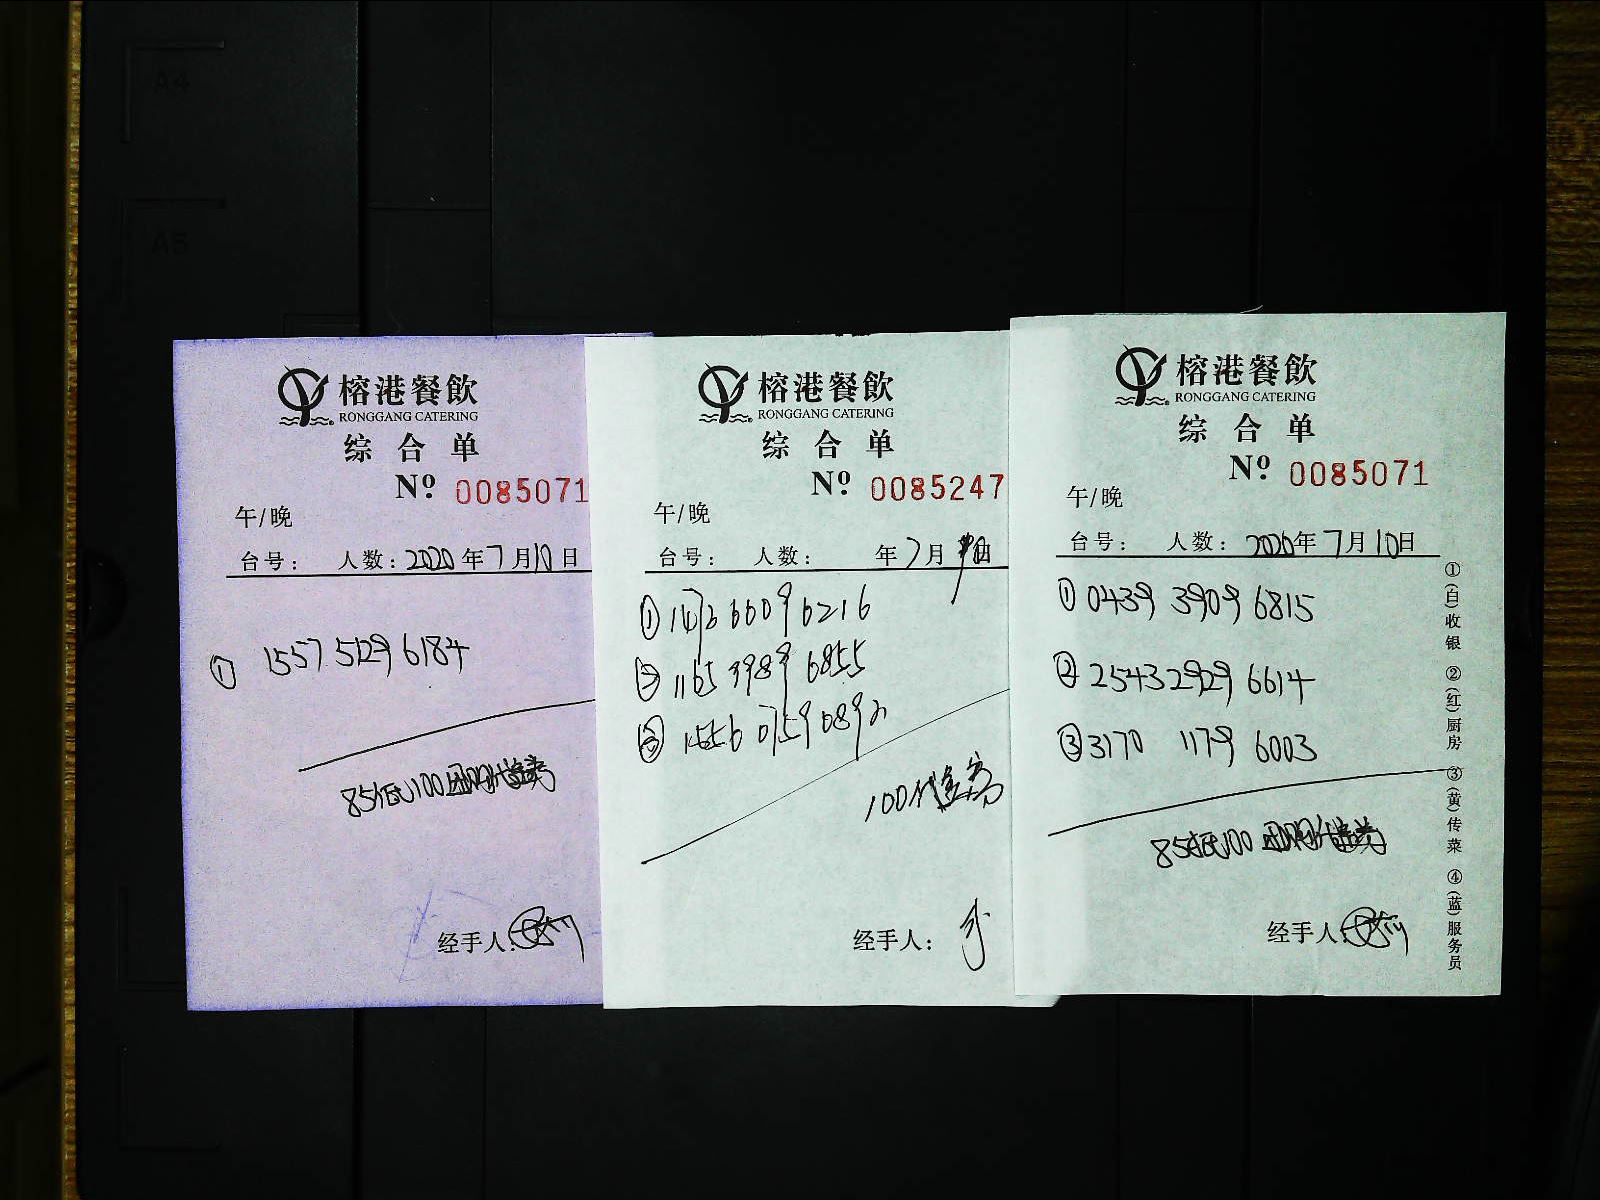 A4
A5
榕港餐飲
RONGGANG CATERING
综合单
Nº 0085071
午/晚
台号: 人数: 2020年7月10日
① 1557 5129 6184
85抵100团购代金券
经手人:
榕港餐飲
RONGGANG CATERING
综合单
Nº 0085247
午/晚
台号: 人数: 年7月日
① 6009 6216
② 1165 3989 6855
③ 1556 0759 0892
100代金券
经手人:
榕港餐飲
RONGGANG CATERING
综合单
Nº 0085071
午/晚
台号: 人数: 2020年7月10日
① 0439 3909 6815
② 2543 2929 6614
③ 3170 1179 6003
85抵100团购代金券
经手人:
①(白)收银 ②(红)厨房 ③(黄)传菜 ④(蓝)服务员